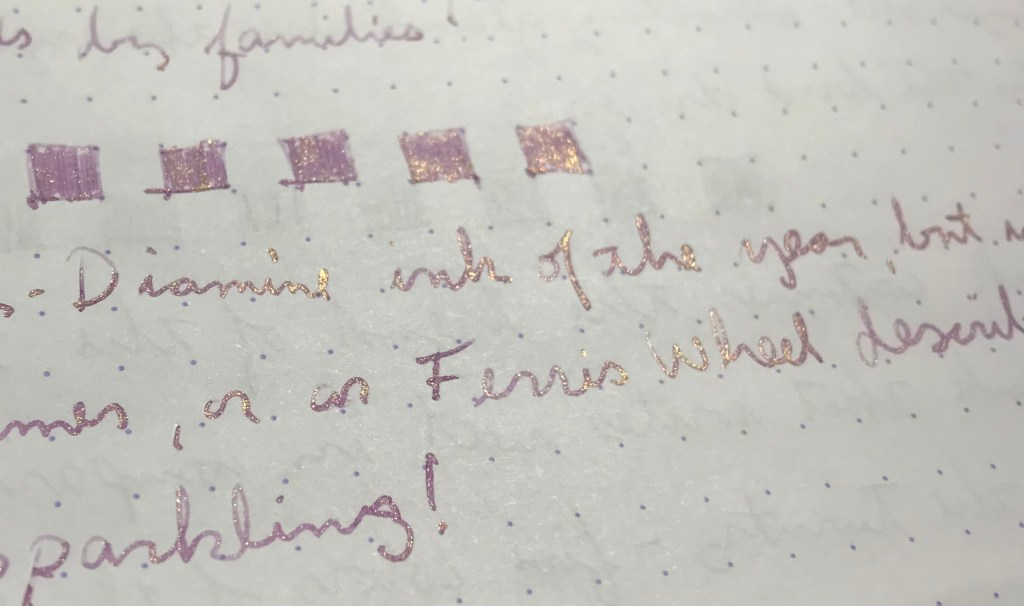 is by families
Diamine ink of the year, but
mes, or as Ferris Wheel describ
sparkling!